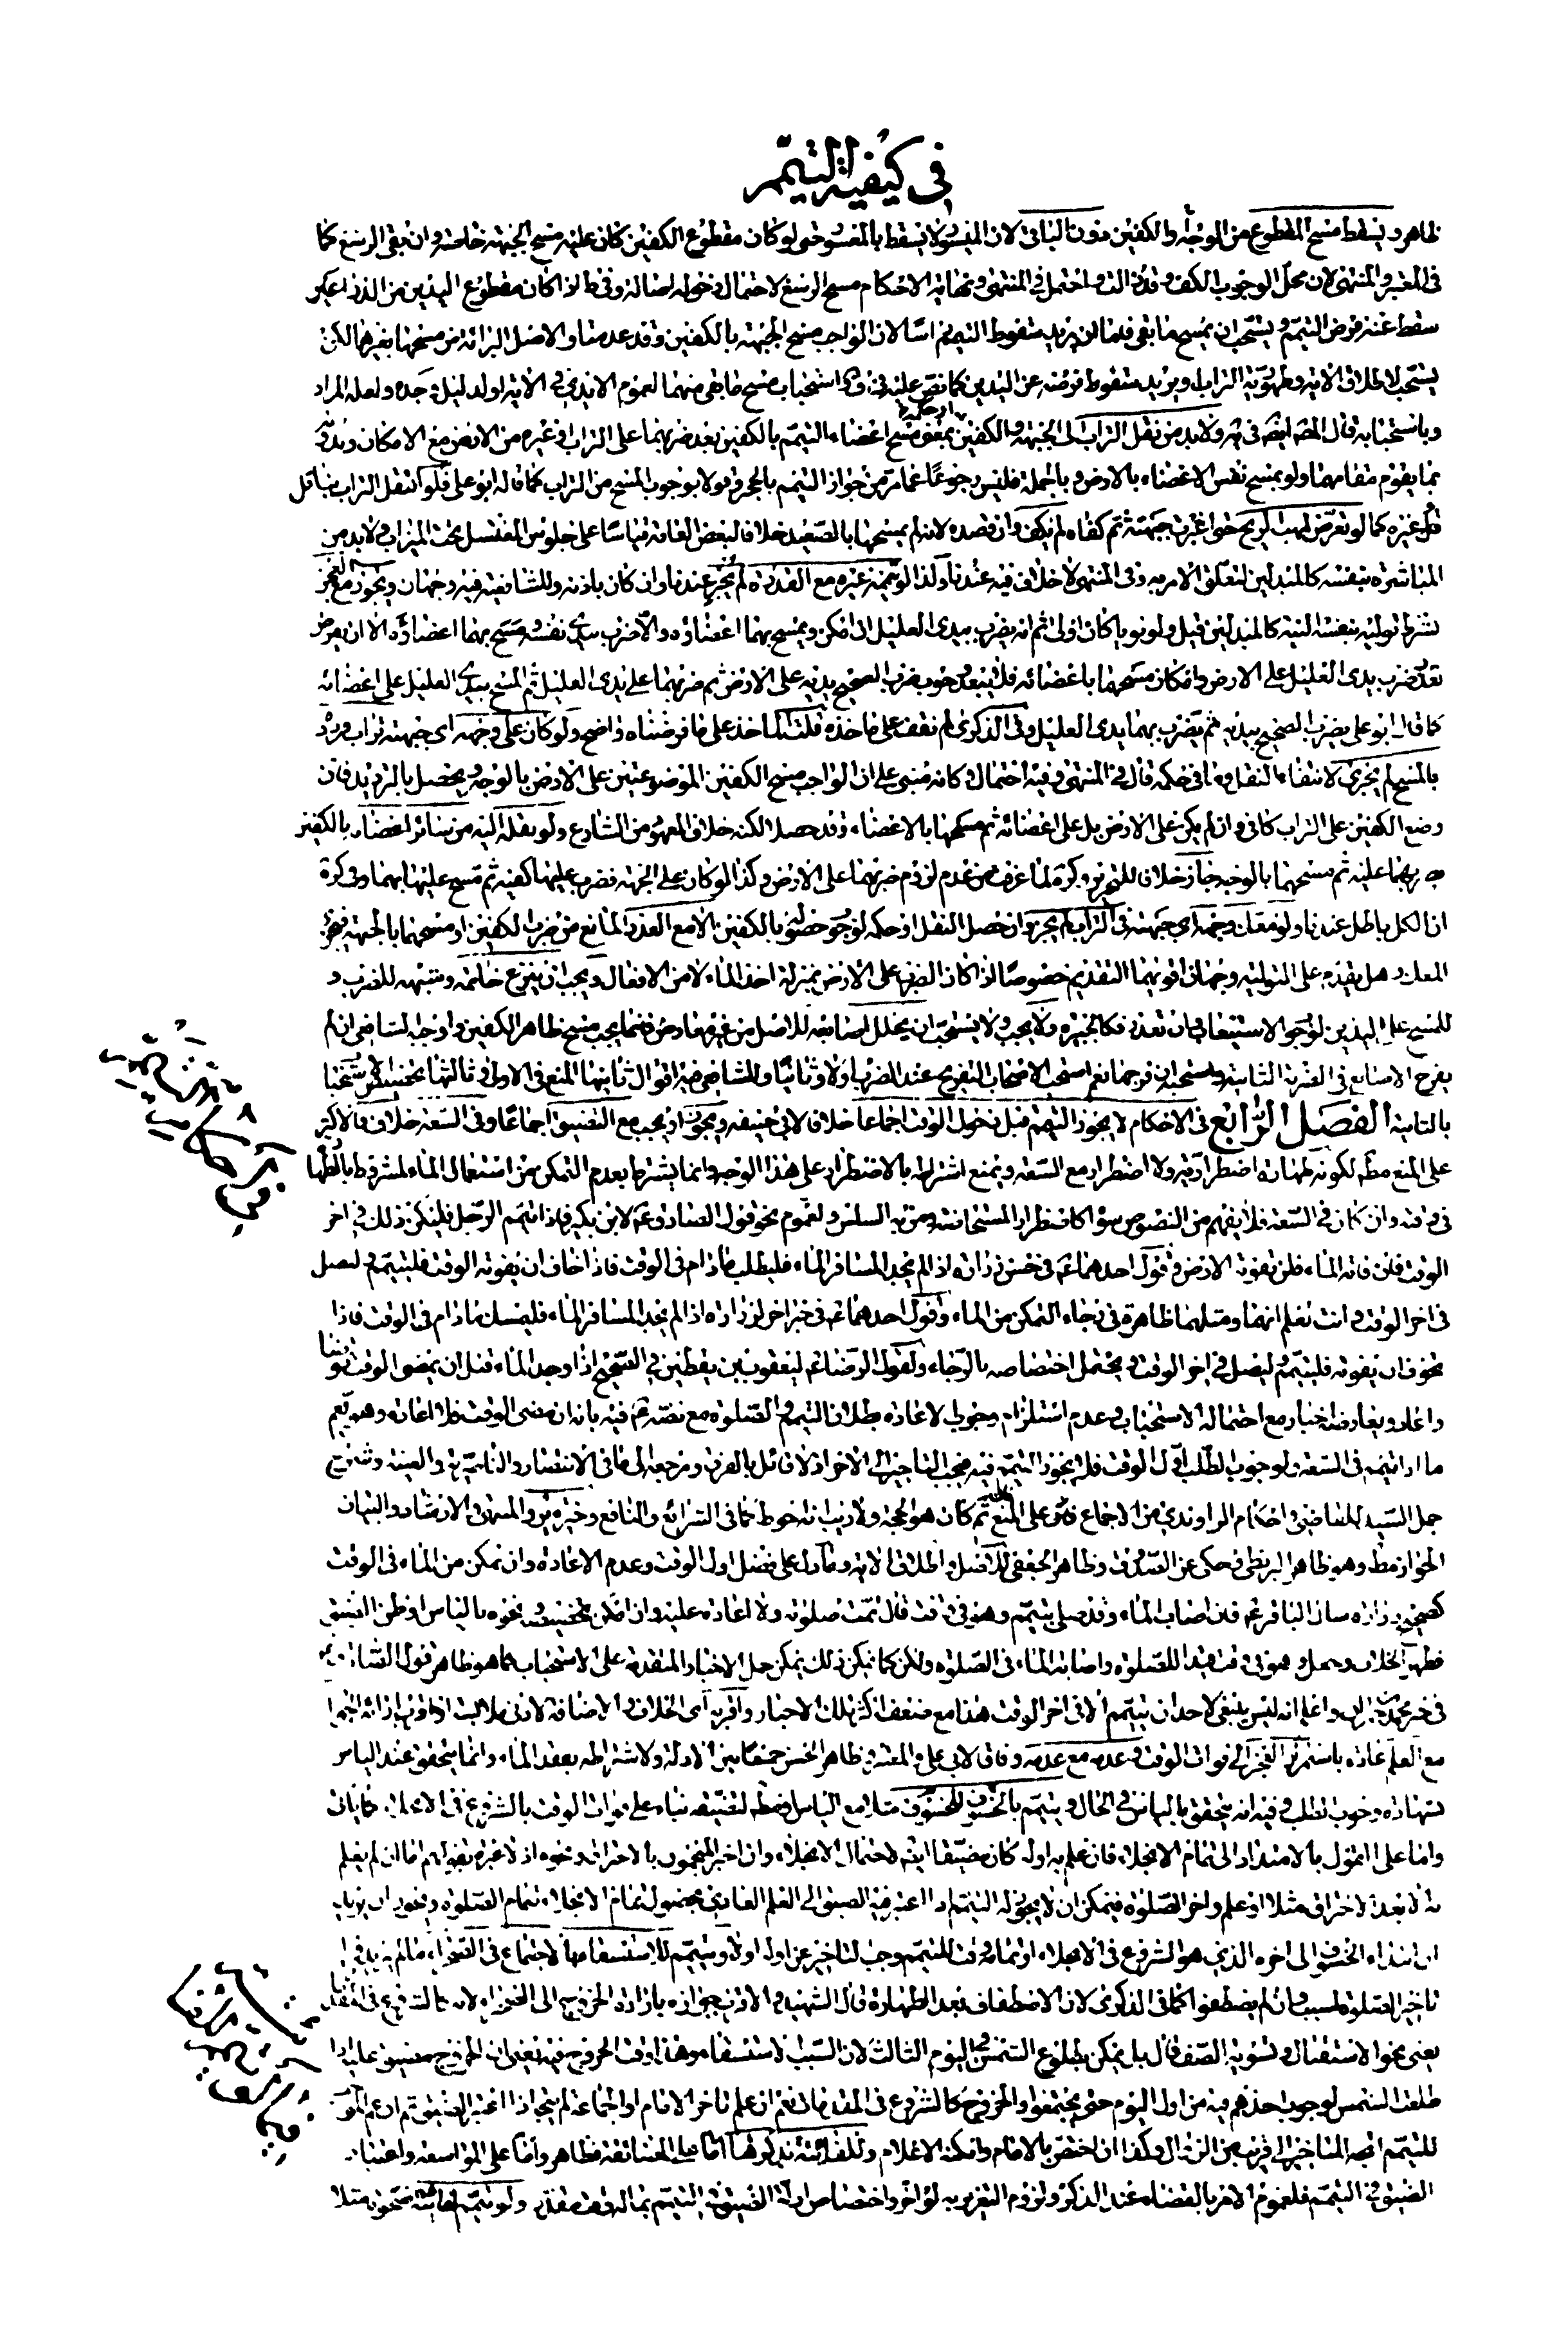 في كيفية التيمم
ظاهر ويسقط مسح المقطوع من الوجه والكفين دون الباقي لان الميسور لا يسقط بالمعسور حتى لو كان مقطوع الكفين كان عليه مسح الجبهة خاصة وان بقى الرسغ كما
في المعتبر والمنتهى لان محل الوجوب الكف وقد فات واحتمل في المنتهى ونهاية الاحكام مسح الرسغ لاحتمال دخوله اصالة وفي ط اذا كان مقطوع اليدين من الذراعين
سقط عنه فرض التيمم ويستحب ان يمسح ما بقي فلما ان يريد سقوط التيمم راسا لان الواجب مسح الجبهة بالكفين وقد عدمتا والاصل البرائة من مسحها بغيرهما لكن
يستحب لاطلاق الاية وطهورية التراب او يريد سقوط فرضه عن اليدين كما نص عليه في استحباب مسح ما بقي منهما لعموم الايدي في الاية اولدليل وجده ولعله المراد
وباستحبابه قال المصنف ايضا في ولابد من نقل التراب الى الجبهة والكفين بمعنى مسح اعضاء التيمم بالكفين بعد ضربهما على التراب او غيره من الارض مع الامكان وبدونه
بما يقوم مقامهما ولو بمسح نفس الاعضاء بالارض وبالجملة فليس رجوعا عما مر من جواز التيمم بالحجر قولا بوجوب المسح من التراب كما قاله ابو علي فلو انتقل التراب بناقل
غيره كما لو تعرض لمهب الريح حتى اغبرت جبهته ثم كفاه لم يكف وان قصده لانه لم يمسحها بالصعيد خلافا لبعض العامة قياسا على جلوس المغتسل تحت الميزاب ولابد من
المباشرة بنفسه كالمبدلين لتعلق الامر به وفي المنتهى لا خلاف فيه عندنا ولذا لو يممه غيره مع القدرة لم يجز عندنا وان كان باذنه وللشافعية فيه وجهان ويجوز مع العجز
بشرط توليه بنفسه النية كالمبدلين قيل ولو نويا كان اولى ثم انه يضرب بيدى العليل ان امكن ويمسح بهما اعضاؤه والا ضرب بيدي نفسه ومسح بهما اعضاؤه الا ان يفرض
تعذر ضرب يدى العليل على الارض وامكان مسحهما باعضائه فلا يبعد وجوب ضرب الصحيح يديه على الارض ثم ضربهما على يدى العليل ثم المسح بيدى العليل على اعضائه
كما قال ابو علي يضرب الصحيح بيديه ثم يضرب بهما يدى العليل وفي الذكرى لم نقف على ماخذه قلت الماخذ على ما فرضناه واضح ولو كان على وجهه اى جبهته تراب فردد
بالمسح لم يجزئ لانتفاء النقل وما في حكمه قال في المنتهى وفيه احتمال وكانه مبنى على ان الواجب مسح الكفين الموضوعتين على الارض بالوجه ويحصل بالترديد فان
وضع الكفين على التراب كاف وان لم يكن على الارض بل على اعضائه ثم مسحهما بالاعضاء وقد حصل لكنه خلاف المعهود من الشارع ولو نقله اليه من سائر اعضاء بالكفين
بضربهما عليه ثم مسحهما بالوجه جاز خلافا للتحرير وكرة لما عرف من عدم لزوم ضربهما على الارض وكذا لو كان على الجبهة فضرب عليها كفيه ثم مسح عليها بهما وفي كرة
ان الكل باطل عندنا ولو معك وجهه اي جبهته في التراب لم يجز وان حصل النقل او حكمه لوجوب حصوله بالكفين الا مع العذر المانع من ضرب الكفين او مسحهما بالجبهة فيجوز
المعك وهل يقدم على التولية وجهان اقويهما التقديم خصوصا اذا كان الضرب على الارض بمنزلة اخذ الماء لا من الافعال ويجب ان ينزع خاتمه ومشبهه للضرب و
للمسح على اليدين لوجوب الاستيعاب فان تعذر فكالجبيرة ولا يجب ولا يستحب ان يخلل اصابعه للاصل من غير معارض وانما يجب مسح ظاهر الكفين واوجبه الشافعي ان لم
يفرج الاصابع في الضربة الثانية واستحبه ان فرجها نعم استحب الاصحاب التفريج عند الضرب اولا وثانيا وللشافعي فيه اقوال ثانيها المنع في الاولى وثالثها تخصيص الاستحباب
بالثانية الفصل الرابع في الاحكام لا يجوز التيمم قبل دخول الوقت اجماعا خلافا لابي حنيفة ويجوز او يجب مع التضييق اجماعا وفي السعة خلاف فالاكثر
على المنع مطلقا لكونه طهارة اضطرارية ولا اضطرار مع السعة ويمنع اشتراطه بالاضطرار على هذا الوجه وانما يشترط بعدم التمكن من استعمال الماء لمشروط بالطهارة
في وقته وان كان في السعة فلا يفهم من النصوص سوى كاضطرار المستحاضة ومن به السلس ولعموم نحو قول الصادق ع لابن بكير فاذا تيمم الرجل فليكن ذلك في اخر
الوقت فان فاته الماء فلن تفوته الارض وقول احدهما ع في حسن زرارة اذا لم يجد المسافر الماء فليطلب ما دام في الوقت فاذا خاف ان يفوته الوقت فليتيمم وليصل
في اخر الوقت وانت تعلم انهما ومثلهما ظاهرة في رجاء التمكن من الماء وقول احدهما ع في خبر اخر لزرارة اذا لم يجد المسافر الماء فليمسك ما دام في الوقت فاذا
تخوف ان يفوته فليتيمم وليصل في اخر الوقت ويحتمل اختصاصه بالرجاء ولقول الرضا ع ليعقوب بن يقطين في الصحيح اذا وجد الماء قبل ان يمضى الوقت توضأ
واعاد ويعارضه اخبار مع احتماله الاستحباب وعدم استلزام وجوب الاعادة بطلان التيمم والصلوة مع نصه ع فيه بانه ان مضى الوقت فلا اعادة وهو يعم
ما اذا تيمم في السعة ولوجوب الطلب اول الوقت فلا يجوز التيمم فيه فيجب التاخير الى الاخر اذ لا قائل بالفرق ومرجعه الى ما في الانتصار والناصرية والغنية وشرح
جمل السيد للقاضي واحكام الراوندي من الاجماع على المنع ثم كان هو الحجة ولا ريب انه احوط كما في الشرائع والنافع وخيرة والمنتهى والارشاد والتبيان
الجواز مطلقا وهو ظاهر البزنطي حكى عن الصدوق وظاهر الجعفي للاصل واطلاق الاية وما دل على فضل اول الوقت وعدم الاعادة وان تمكن من الماء في الوقت
كصحيح زرارة سال الباقر ع فان اصاب الماء وقد صلى بتيمم وهو في وقت قال تمت صلوته ولا اعادة عليه وان امكن تخصيصه ونحوه بالياس او ظن الضيق
فظهر الخلاف وحمل وهو في وقت قيدا للصلوة واصابة الماء في الصلوة ولكن كما يمكن ذلك يمكن حمل الاخبار المتقدمة على الاستحباب كما هو ظاهر قول
في خبر محمد بن حمران واعلم انه ليس ينبغي لاحد ان يتيمم الا في اخر الوقت هذا مع ضعف اكثر تلك الاخبار واقربه
مع العلم عادة باستمرار العجز الى فوات الوقت وعدمه مع عدمه وفاقا لابي علي والمعتبر وظاهر الحسن جمعا بين الادلة ولاشتراطه بفقد الماء وانما يتحقق عند الياس
شهادة وجوب الطلب وفيه انه يتحقق بالياس في الحال ويتيمم بالخسوف للخسوف مثلا مع الياس ومطلقا لتضيقه بناء على فوات الوقت بالشروع في الانجلاء كما ياتى
واما على القول بالامتداد الى تمام الانجلاء فان علم به اوله كان مضيقا ايضا لاحتمال الانجلاء وان اخبر المنجمون بالاحتراق ونحوه اذ لا عبرة بقولهم اما ان لم يعلم
به الا بعد الاحتراق مثلا او علم واخر الصلوة فيمكن ان لا يجوز له التيمم اذا اعتبر فيه الضيق الى العلم العادي بحصول تمام الانجلاء بتمام الصلوة
ان ابتداء الخسوف الى اخره الذي هو الشروع في الانجلاء او تمامه وقت للتيمم وجب التاخير عن اوله اولا ويتيمم للاستسقاء بالاجتماع في الصحراء
تاخير الصلوة لسبب وان لم يصطفوا كما في الذكرى لان الاصطفاف بعد الطهارة قال الشهيد والاقرب جوازه بارادة الخروج الى الصحراء لانه كالشروع في
يعنى نحو الاستقبال وتسوية الصف قال بل يمكن بطلوع الشمس في اليوم الثالث لان السبب الاستسقاء وهذا وقت الخروج فيه يعنى ان الخروج مضيق عليه اذا
طلعت الشمس لوجوب اخذهم فيه من اول اليوم حتى يجتمعوا والخروج كالشروع في المقدمات نعم ان علم تاخر الامام او الجماعة لم يتجه اذا اعتبر الضيق
للتيمم اتجه التاخير الى قريب من الزوال وكذا ان اختص بالامام وامكنه الاعلام وللفائتة بذكرها اما على المضايقة فظاهر واما على المواسعة واعتبار
الضيق في التيمم فلعموم الامر بالقضاء عند الذكر ولزوم التغرير به لو اخر واختصاص ادلة الضيق في التيمم بماله وقت مقدر ولو تيمم لفائتة ضحوة مثلا